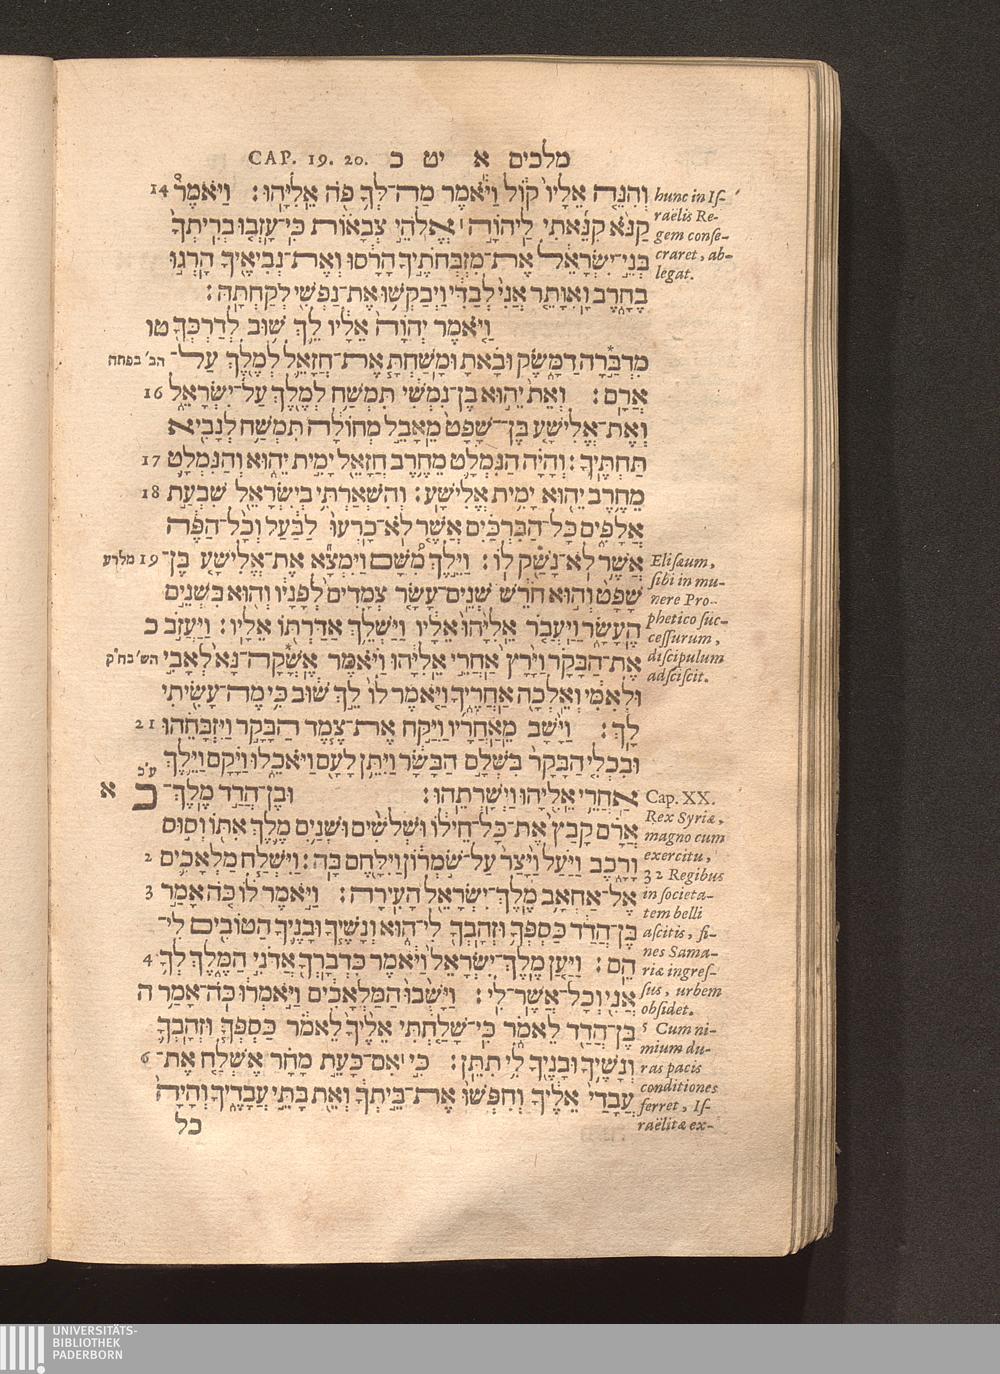 CAP. 19. 20. מלכים א יט כ
וְהִנֵּה אֵלָיו קוֹל וַיֹּאמֶר מַה־לְּךָ פֹה אֵלִיָּהוּ׃ וַיֹּאמֶר 14
קַנֹּא קִנֵּאתִי לַיהוָה ׀ אֱלֹהֵי צְבָאוֹת כִּי־עָזְבוּ בְרִיתְךָ
בְּנֵי־יִשְׂרָאֵל אֶת־מִזְבְּחֹתֶיךָ הָרָסוּ וְאֶת־נְבִיאֶיךָ הָרְגוּ
בֶחָרֶב וָאִוָּתֵר אֲנִי לְבַדִּי וַיְבַקְשׁוּ אֶת־נַפְשִׁי לְקַחְתָּהּ׃
וַיֹּאמֶר יְהוָה אֵלָיו לֵךְ שׁוּב לְדַרְכְּךָ טו
מִדְבַּרָה דַמָּשֶׂק וּבָאתָ וּמָשַׁחְתָּ אֶת־חֲזָאֵל לְמֶלֶךְ עַל־ הב׳ בפתח
אֲרָם׃ וְאֵת יֵהוּא בֶן־נִמְשִׁי תִּמְשַׁח לְמֶלֶךְ עַל־יִשְׂרָאֵל 16
וְאֶת־אֱלִישָׁע בֶּן־שָׁפָט מֵאָבֵל מְחוֹלָה תִמְשַׁח לְנָבִיא
תַּחְתֶּיךָ׃ וְהָיָה הַנִּמְלָט מֵחֶרֶב חֲזָאֵל יָמִית יֵהוּא וְהַנִּמְלָט 17
מֵחֶרֶב יֵהוּא יָמִית אֱלִישָׁע׃ וְהִשְׁאַרְתִּי בְיִשְׂרָאֵל שִׁבְעַת 18
אֲלָפִים כָּל־הַבִּרְכַּיִם אֲשֶׁר לֹא־כָרְעוּ לַבַּעַל וְכָל־הַפֶּה
אֲשֶׁר לֹא־נָשַׁק לוֹ׃ וַיֵּלֶךְ מִשָּׁם וַיִּמְצָא אֶת־אֱלִישָׁע בֶּן־ 19 מלרע
שָׁפָט וְהוּא חֹרֵשׁ שְׁנֵים־עָשָׂר צְמָדִים לְפָנָיו וְהוּא בִּשְׁנֵים
הֶעָשָׂר וַיַּעֲבֹר אֵלִיָּהוּ אֵלָיו וַיַּשְׁלֵךְ אַדַּרְתּוֹ אֵלָיו׃ וַיַּעֲזֹב כ
אֶת־הַבָּקָר וַיָּרָץ אַחֲרֵי אֵלִיָּהוּ וַיֹּאמֶר אֶשֳּׁקָה־נָּא לְאָבִי הש׳ בח״ק
וּלְאִמִּי וְאֵלְכָה אַחֲרֶיךָ וַיֹּאמֶר לוֹ לֵךְ שׁוּב כִּי מֶה־עָשִׂיתִי
לָךְ׃ וַיָּשָׁב מֵאַחֲרָיו וַיִּקַּח אֶת־צֶמֶד הַבָּקָר וַיִּזְבָּחֵהוּ 21
וּבִכְלִי הַבָּקָר בִּשְּׁלָם הַבָּשָׂר וַיִּתֵּן לָעָם וַיֹּאכֵלוּ וַיָּקָם וַיֵּלֶךְ
אַחֲרֵי אֵלִיָּהוּ וַיְשָׁרְתֵהוּ׃ וּבֶן־הֲדַד מֶלֶךְ־ כ א
אֲרָם קָבַץ אֶת־כָּל־חֵילוֹ וּשְׁלֹשִׁים וּשְׁנַיִם מֶלֶךְ אִתּוֹ וְסוּס
וָרָכֶב וַיַּעַל וַיָּצַר עַל־שֹׁמְרוֹן וַיִּלָּחֶם בָּהּ׃ וַיִּשְׁלַח מַלְאָכִים 2
אֶל־אַחְאָב מֶלֶךְ־יִשְׂרָאֵל הָעִירָה׃ וַיֹּאמֶר לוֹ כֹּה אָמַר 3
בֶּן־הֲדַד כַּסְפְּךָ וּזְהָבְךָ לִי־הוּא וְנָשֶׁיךָ וּבָנֶיךָ הַטּוֹבִים לִי־
הֵם׃ וַיַּעַן מֶלֶךְ־יִשְׂרָאֵל וַיֹּאמֶר כִּדְבָרְךָ אֲדֹנִי הַמֶּלֶךְ לְךָ 4
אֲנִי וְכָל־אֲשֶׁר־לִי׃ וַיָּשֻׁבוּ הַמַּלְאָכִים וַיֹּאמְרוּ כֹּה־אָמַר ה
בֶּן־הֲדַד לֵאמֹר כִּי־שָׁלַחְתִּי אֵלֶיךָ לֵאמֹר כַּסְפְּךָ וּזְהָבְךָ
וְנָשֶׁיךָ וּבָנֶיךָ לִי תִתֵּן׃ כִּי ׀ אִם־כָּעֵת מָחָר אֶשְׁלַח אֶת־ 6
עֲבָדַי אֵלֶיךָ וְחִפְּשׂוּ אֶת־בֵּיתְךָ וְאֵת בָּתֵּי עֲבָדֶיךָ וְהָיָה
כל
hunc in Is-
raëlis Re-
gem conse-
craret, ab-
legat.
Elisæum,
sibi in mu-
nere Pro-
phetico suc-
cessurum,
discipulum
adsciscit.
Cap. XX.
Rex Syriæ,
magno cum
exercitu,
32 Regibus
in societa-
tem belli
ascitis, fi-
nes Sama-
riæ ingres-
sus, urbem
obsidet.
5 Cum ni-
mium du-
ras pacis
conditiones
ferret, Is-
raëlitæ ex-
UNIVERSITÄTS-
BIBLIOTHEK
PADERBORN